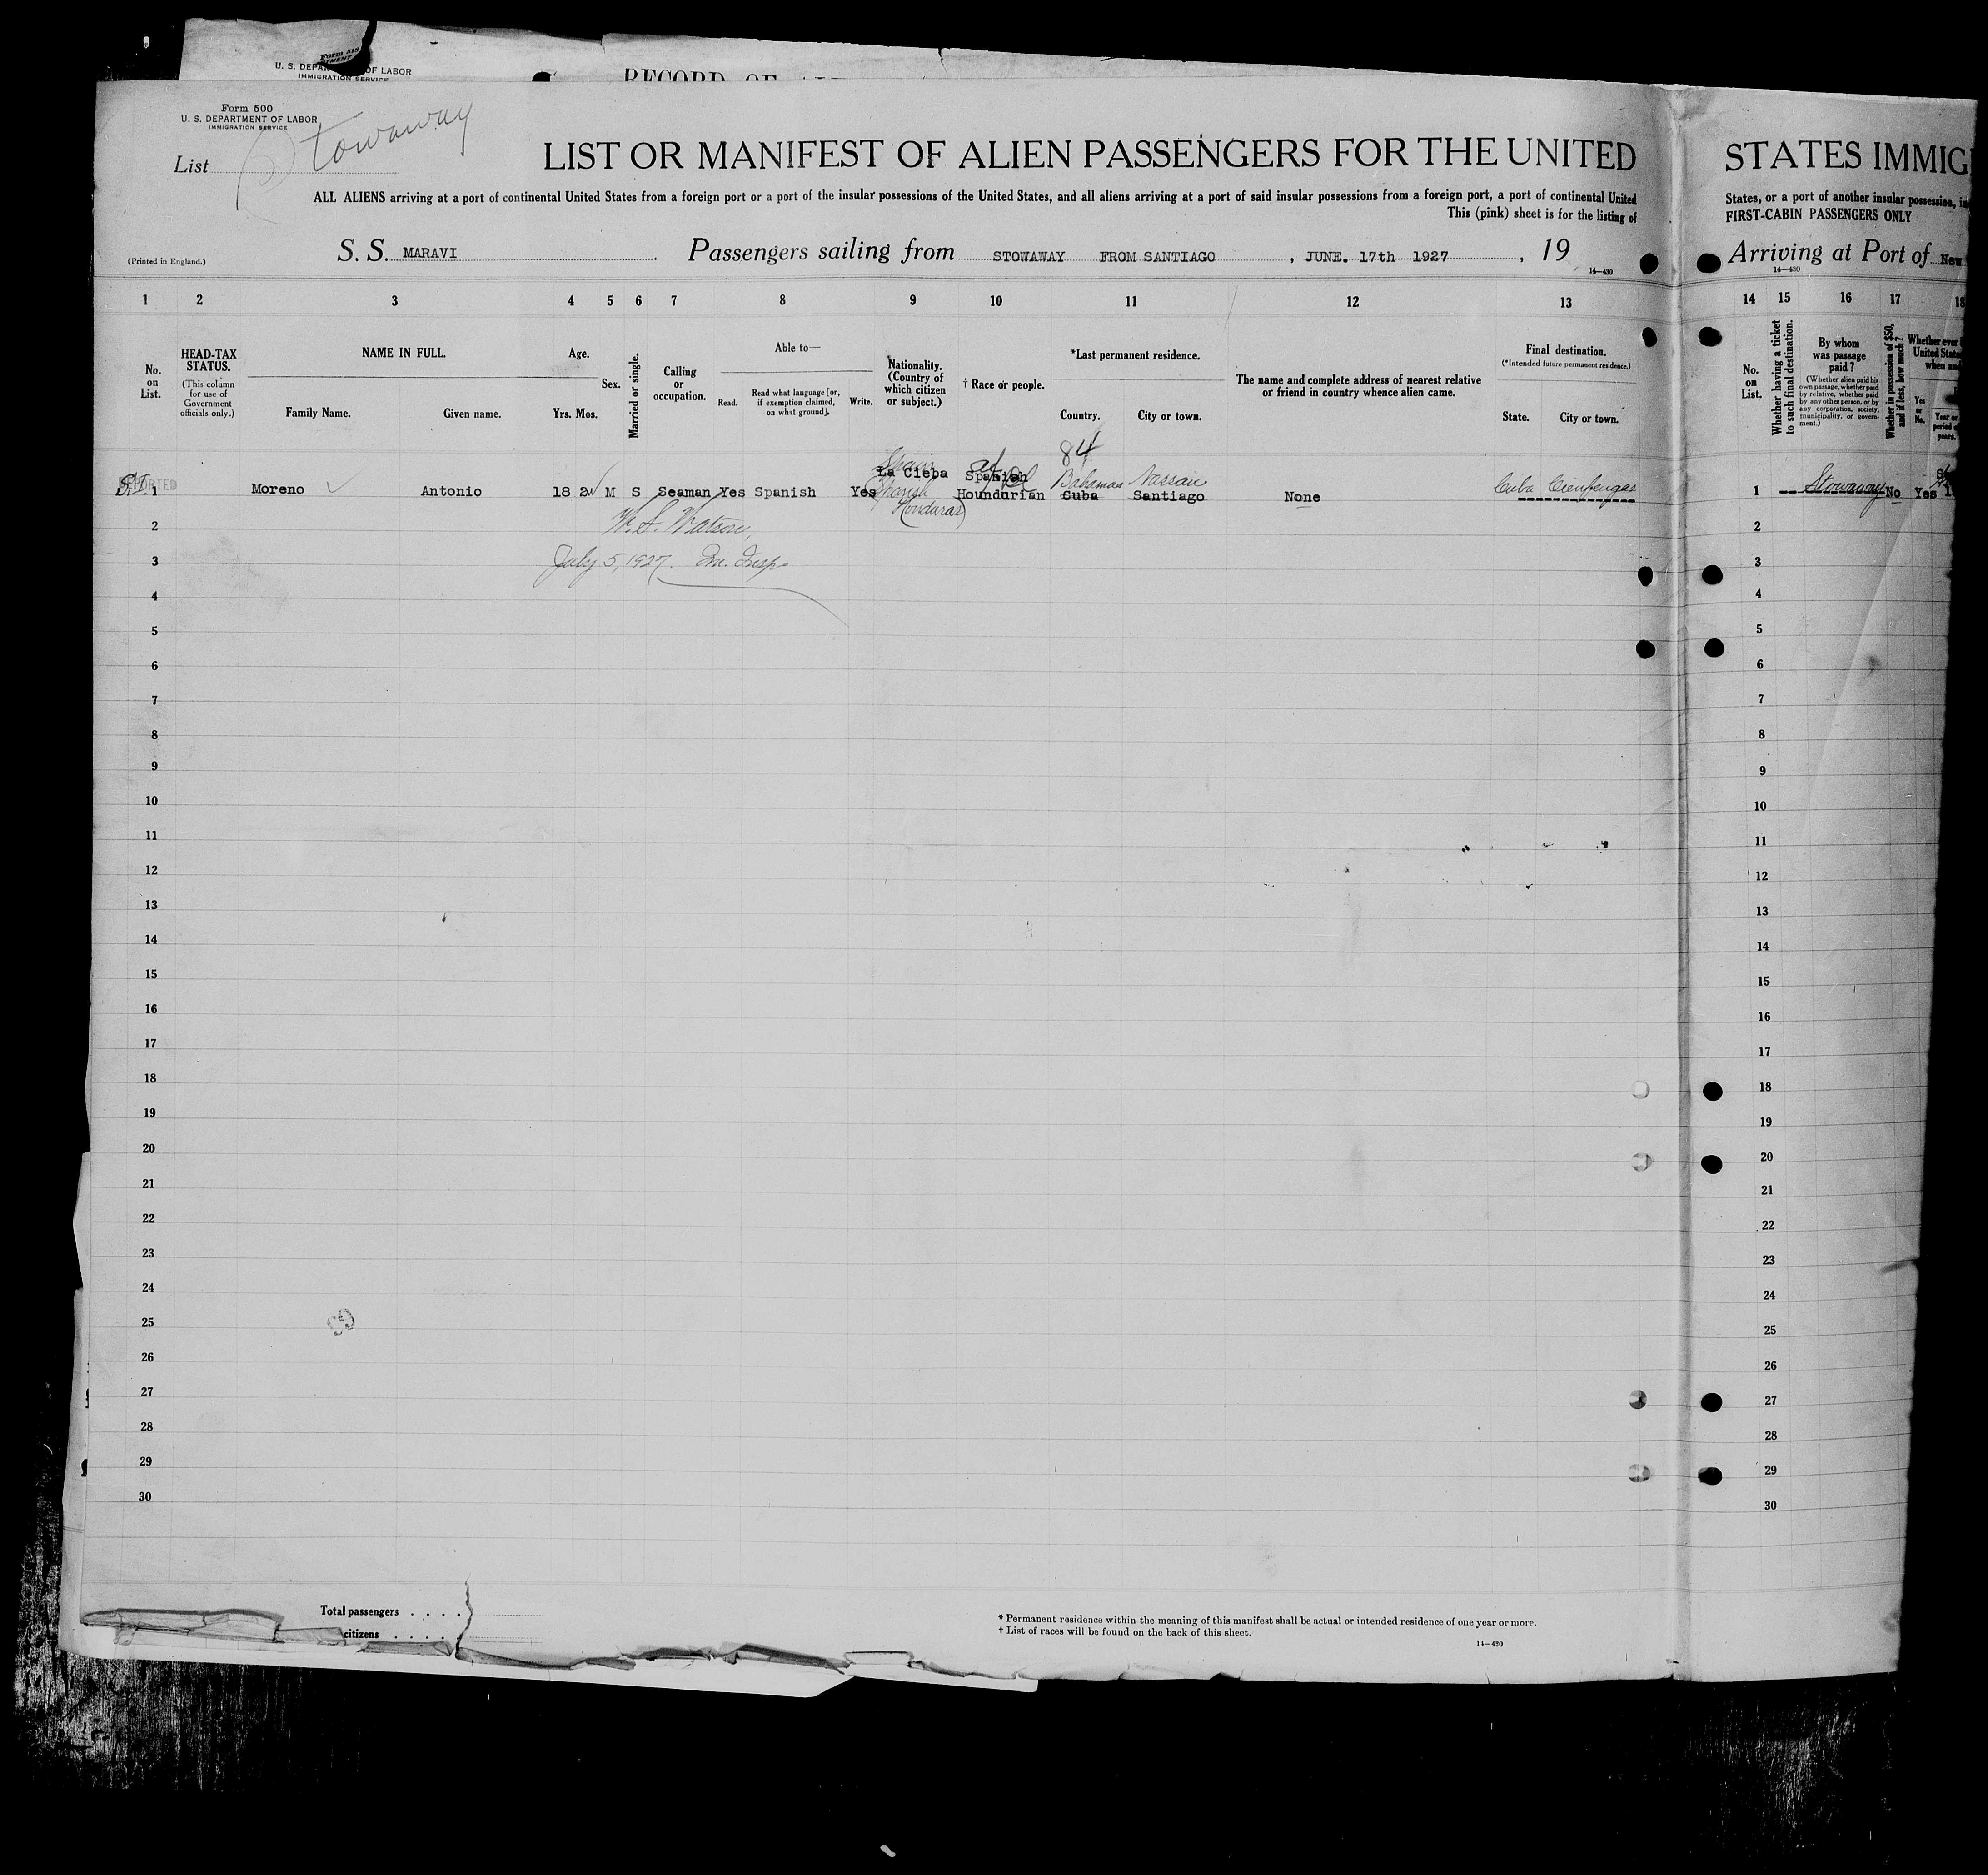 Form 500
U. S. DEPARTMENT OF LABOR
IMMIGRATION SERVICE
U. S. DEPARTMENT OF LABOR
IMMIGRATION SERVICE
List Stowaway
LIST OR MANIFEST OF ALIEN PASSENGERS FOR THE UNITED
ALL ALIENS arriving at a port of continental United States from a foreign port or a port of the insular possessions of the United States, and all aliens arriving at a port of said insular possessions from a foreign port, a port of continental United
This (pink) sheet is for the listing of
(Printed in England.)
S. S. MARAVI Passengers sailing from STOWAWAY FROM SANTIAGO , JUNE. 17th 1927 , 19
14—430
1 2 3 4 5 6 7 8 9 10 11 12 13
No. on List.
HEAD-TAX STATUS.
(This column for use of Government officials only.)
NAME IN FULL.
Family Name. Given name.
Age.
Yrs. Mos.
Sex.
Married or single.
Calling or occupation.
Able to—
Read. Read what language [or, if exemption claimed, on what ground]. Write.
Nationality. (Country of which citizen or subject.)
† Race or people.
*Last permanent residence.
Country. City or town.
The name and complete address of nearest relative or friend in country whence alien came.
Final destination.
(*Intended future permanent residence.)
State. City or town.
84
La Cieba Spanish Bahamas Nassau
1 Moreno Antonio 18 2 M S Seaman Yes Spanish Yes Houndurian Cuba Santiago None Cuba Cienfuegos
(Honduras)
W. S. Watson,
July 5, 1927. Im. Insp.
2
3
4
5
6
7
8
9
10
11
12
13
14
15
16
17
18
19
20
21
22
23
24
25
26
27
28
29
30
Total passengers . . . .
citizens . . . .
* Permanent residence within the meaning of this manifest shall be actual or intended residence of one year or more.
† List of races will be found on the back of this sheet.
14—430
STATES IMMIG
States, or a port of another insular possession, in
FIRST-CABIN PASSENGERS ONLY
Arriving at Port of New
14—430
14 15 16 17 18
No. on List.
Whether having a ticket to such final destination.
By whom was passage paid?
(Whether alien paid his own passage, whether paid by relative, whether paid by any other person, or by any corporation, society, municipality, or government.)
Whether in possession of $50, and if less, how much?
Whether ever
United States
when and
Yes or No.
Year or period of years.
1 — Stowaway No Yes
2
3
4
5
6
7
8
9
10
11
12
13
14
15
16
17
18
19
20
21
22
23
24
25
26
27
28
29
30